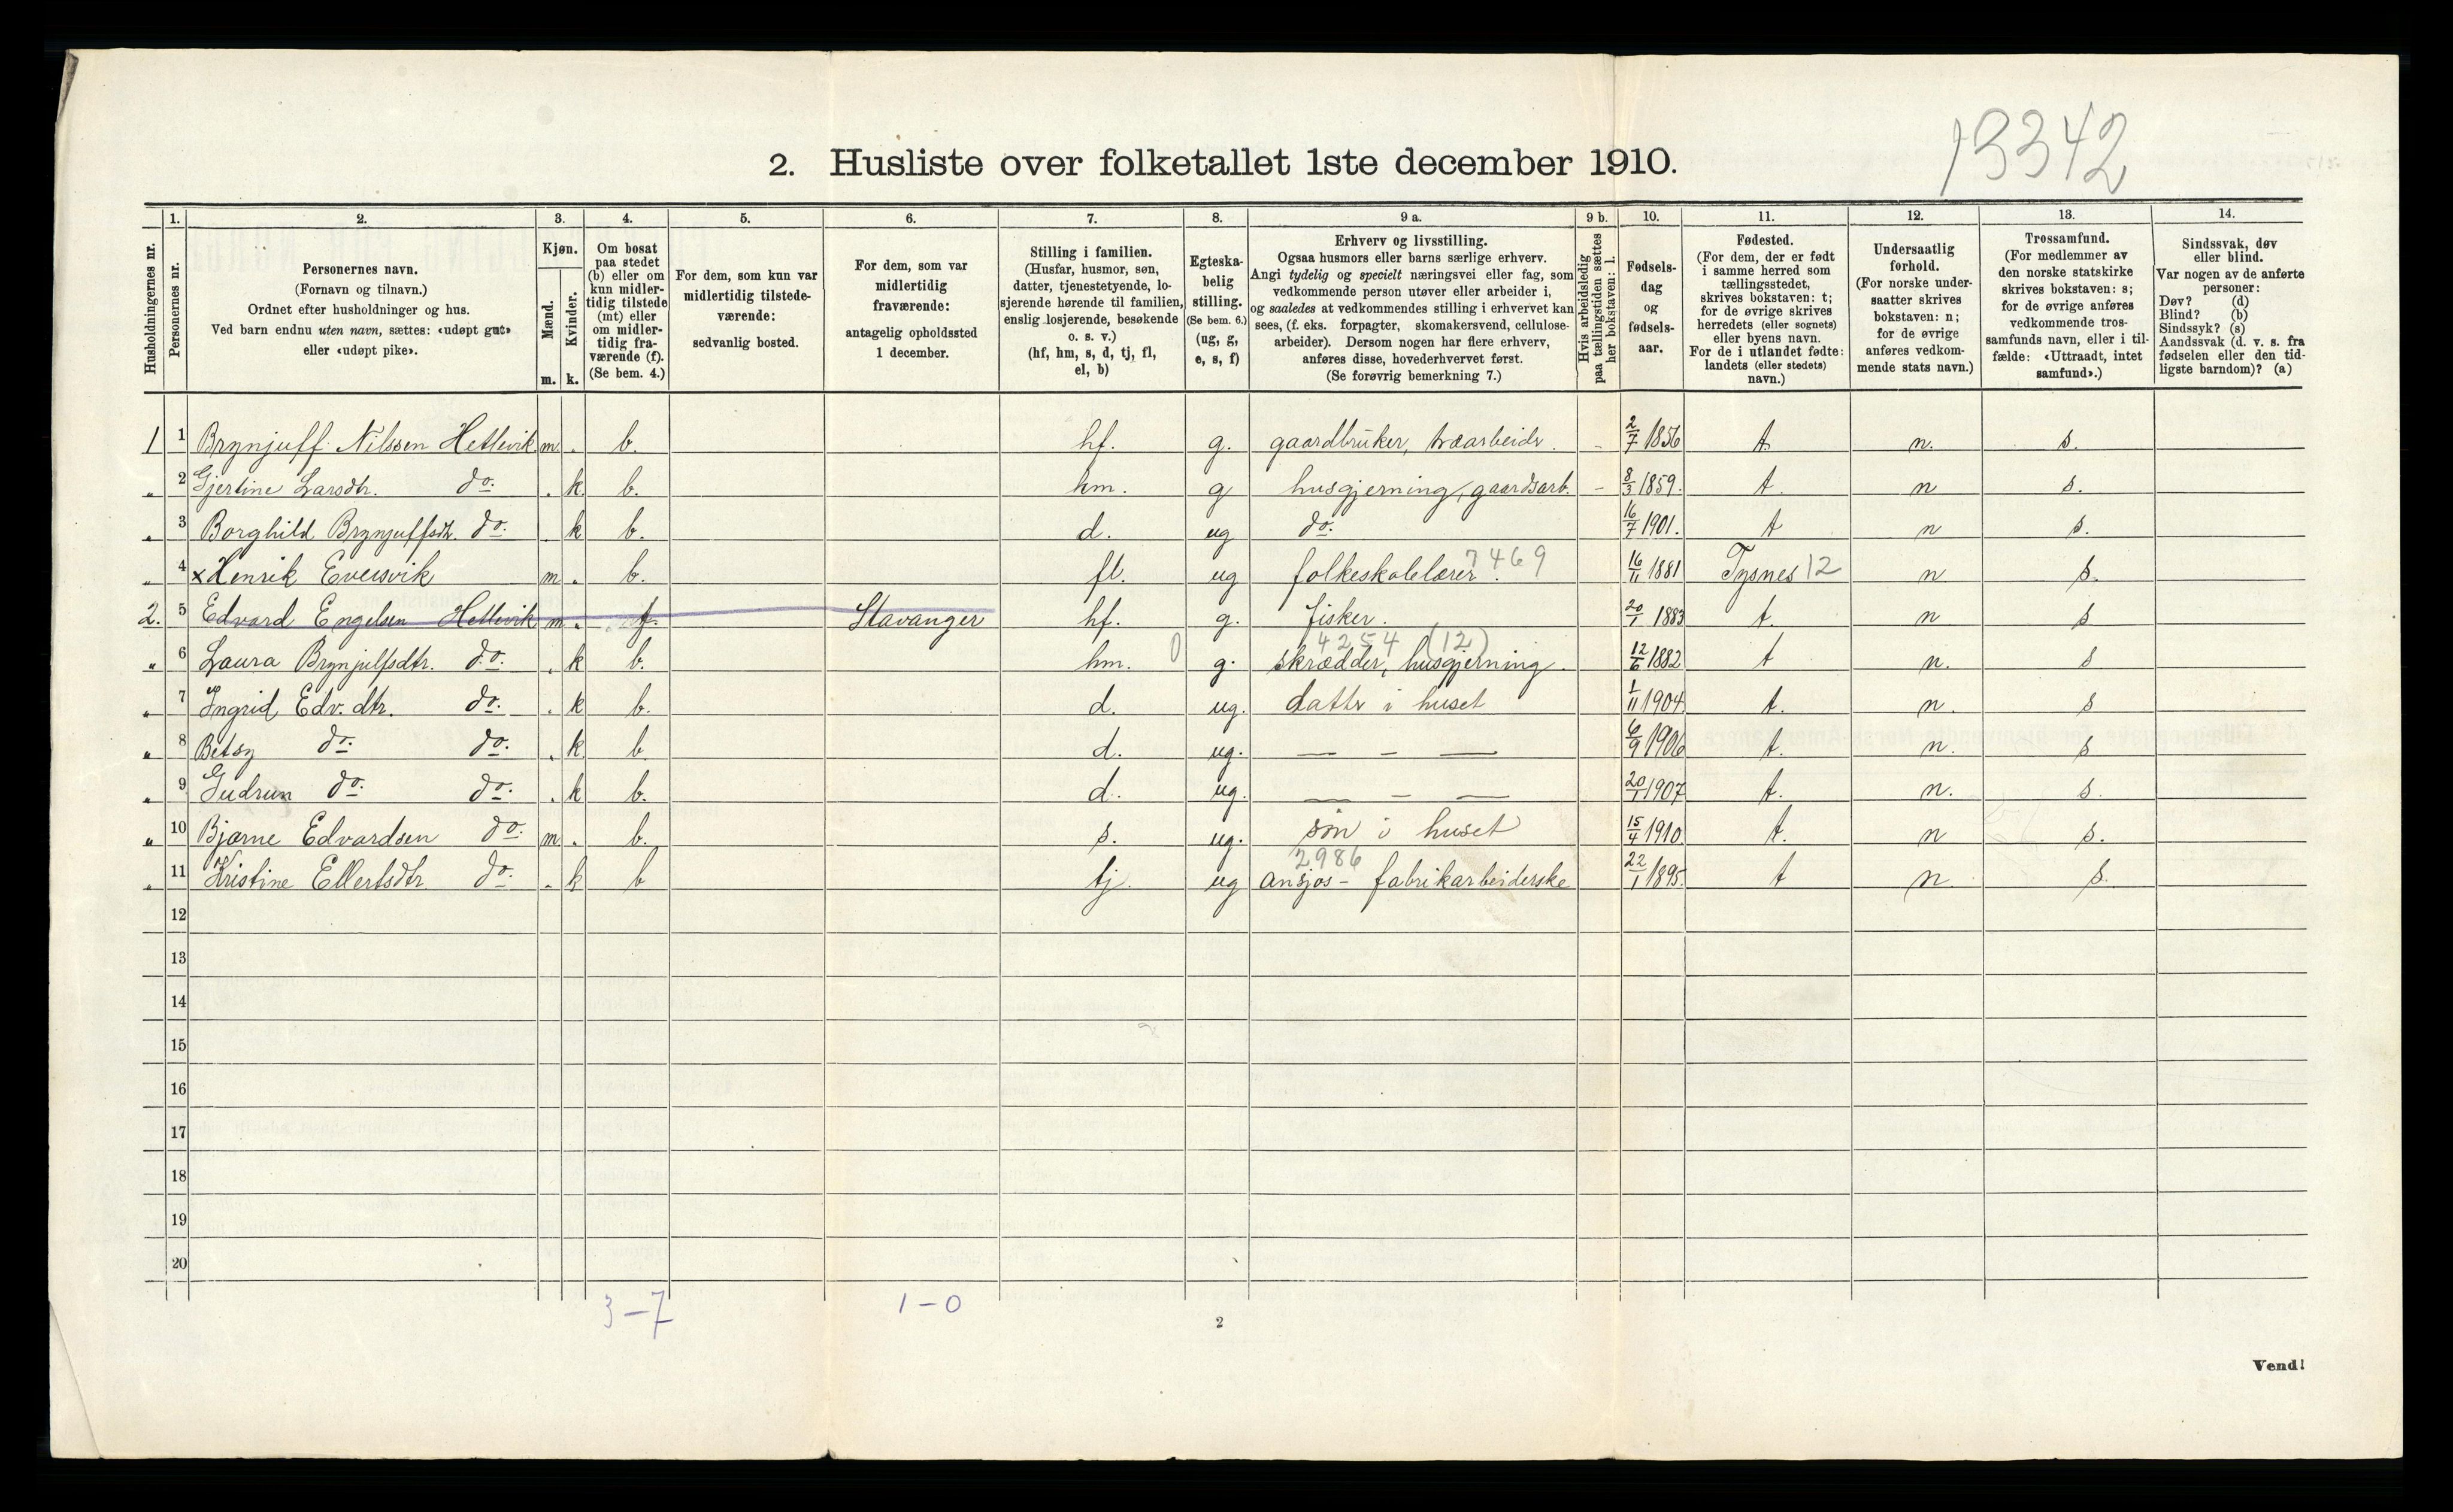 13342
2. Husliste over folketallet 1ste december 1910.
1. 2. 3. 4. 5. 6. 7. 8. 9 a. 9 b. 10. 11. 12. 13. 14.
Husholdningernes nr.
Personernes nr.
Personernes navn.
(Fornavn og tilnavn.)
Ordnet efter husholdninger og hus.
Ved barn endnu uten navn, sættes: «udøpt gut»
eller «udøpt pike».
Kjøn.
Mænd.
Kvinder.
m. k.
Om bosat
paa stedet
(b) eller om
kun midler-
tidig tilstede
(mt) eller
om midler-
tidig fra-
værende (f).
(Se bem. 4.)
For dem, som kun var
midlertidig tilstede-
værende:
sedvanlig bosted.
For dem, som var
midlertidig
fraværende:
antagelig opholdssted
1 december.
Stilling i familien.
(Husfar, husmor, søn,
datter, tjenestetyende, lo-
sjerende hørende til familien,
enslig losjerende, besøkende
o. s. v.)
(hf, hm, s, d, tj, fl,
el, b)
Egteska-
belig
stilling.
(Se bem. 6.)
(ug, g,
e, s, f)
Erhverv og livsstilling.
Ogsaa husmors eller barns særlige erhverv.
Angi tydelig og specielt næringsvei eller fag, som
vedkommende person utøver eller arbeider i,
og saaledes at vedkommendes stilling i erhvervet kan
sees, (f. eks. forpagter, skomakersvend, cellulose-
arbeider). Dersom nogen har flere erhverv,
anføres disse, hovederhvervet først.
(Se forøvrig bemerkning 7.)
Hvis arbeidsledig
paa tællingstiden sættes
her bokstaven: l.
Fødsels-
dag
og
fødsels-
aar.
Fødested.
(For dem, der er født
i samme herred som
tællingsstedet,
skrives bokstaven: t;
for de øvrige skrives
herredets (eller sognets)
eller byens navn.
For de i utlandet fødte:
landets (eller stedets)
navn.)
Undersaatlig
forhold.
(For norske under-
saatter skrives
bokstaven: n;
for de øvrige
anføres vedkom-
mende stats navn.)
Trossamfund.
(For medlemmer av
den norske statskirke
skrives bokstaven: s;
for de øvrige anføres
vedkommende tros-
samfunds navn, eller i til-
fælde: «Uttraadt, intet
samfund».)
Sindssvak, døv
eller blind.
Var nogen av de anførte
personer:
Døv? (d)
Blind? (b)
Sindssyk? (s)
Aandssvak (d. v. s. fra
fødselen eller den tid-
ligste barndom)? (a)
1 1 Brynjulf Nilssen Hetlevik m. . b. hf. g. gaardbruker, træarbeider. - 2/7 1856 t. n. s.
" 2 Gjertine Larsdtr. do. . k. b. hm. g husgjerning, gaardsarb. - 8/3 1859. t. n s.
" 3 Borghild Brynjulfsdtr. do. . k b. d. ug do. 16/7 1901. t n s.
" 4 x Henrik Eversvik m . b. fl. ug folkeskolelærer. 7469 16/11 1881 Tysnes 12 n s.
2. 5 Edvard Engelsen Hetlevik m . f. Stavanger hf. g. fisker. 20/1 1883 t. n s
4254 (12)
" 6 Laura Brynjulfsdtr. do. . k b. hm. 0 g. skrædder, husgjerning. 12/6 1882 t n. s
" 7 Ingrid Edv. dtr. do. . k b. d. ug. datter i huset 1/11 1904. t. n. s
" 8 Betsy do. do. . k b. d. ug. — - — 6/9 1906 t. n. s
" 9 Gudrun do. do. . k b. d. ug. — - — 20/1 1907 t. n. s.
" 10 Bjarne Edvardsen do. m . b. s. ug. søn i huset 15/4 1910. t. n s.
2986
" 11 Kristine Ellertsdtr do. . k b tj. ug ansjos- fabrikarbeiderske 22/1 1895. t n. s.
12
13
14
15
16
17
18
19
20
3-7 1-0
2
Vend!